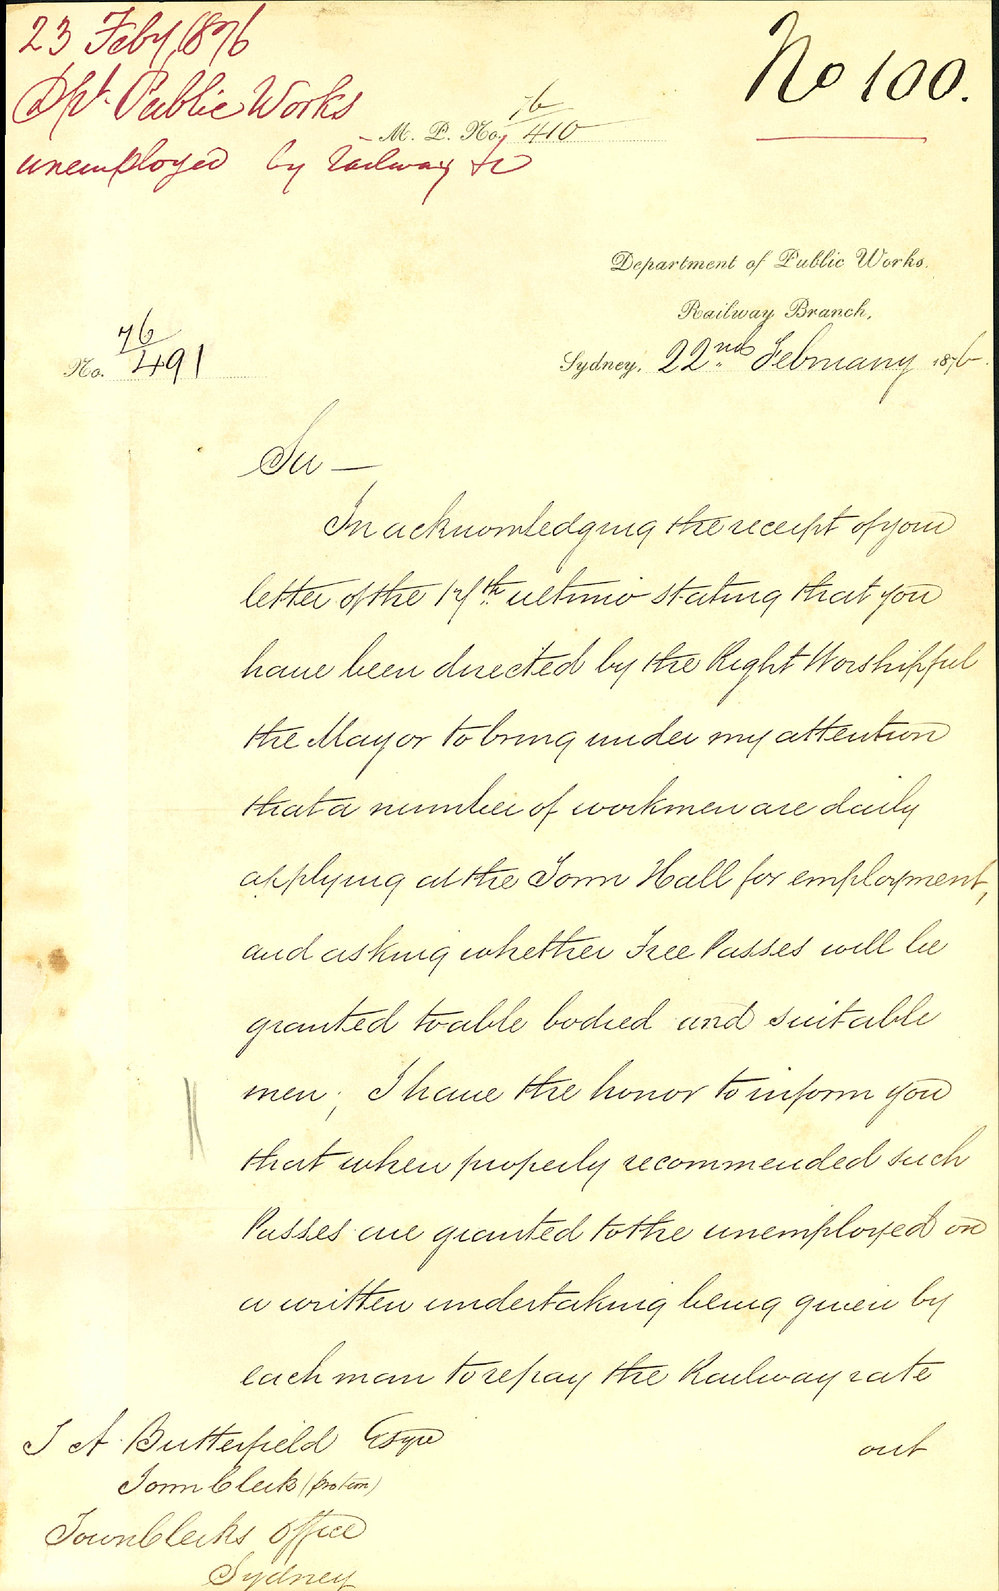 23 Feby 1876
Dpt. Public Works
unemployed by railway &c
No 100.
M. P. No. 76/410
Department of Public Works.
Railway Branch,
Sydney, 22nd. February 1876.
No. 76/491
Sir —
In acknowledging the receipt of your
letter of the 17th. ultimo stating that you
have been directed by the Right Worshipful
the Mayor to bring under my attention
that a number of workmen are daily
applying at the Town Hall for employment,
and asking whether Free Passes will be
granted to able bodied and suitable
men; I have the honor to inform you
that when properly recommended such
Passes are granted to the unemployed on
a written undertaking being given by
each man to repay the Railway rate
out
J A. Butterfield Esqre
Town Clerk (pro tem)
Town Clerks Office
Sydney